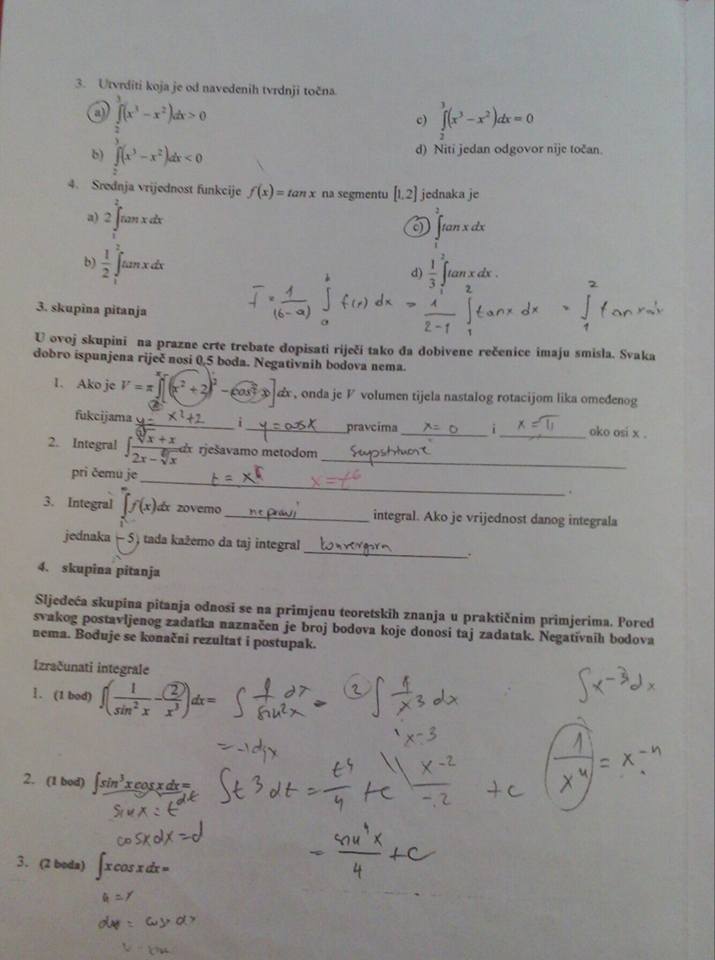 3. Utvrditi koja je od navedenih tvrdnji točna.
a) ∫₂³(x³ − x²)dx > 0
c) ∫₂³(x³ − x²)dx = 0
b) ∫₂³(x³ − x²)dx < 0
d) Niti jedan odgovor nije točan.
4. Srednja vrijednost funkcije f(x) = tan x na segmentu [1,2] jednaka je
a) 2∫₁²tan x dx
c) ∫₁²tan x dx
b) 1/2 ∫₁²tan x dx
d) 1/3 ∫₁²tan x dx .
f̄ = 1/(b-a) ∫ₐᵇ f(x) dx = 1/2-1 ∫₁² tanx dx = ∫₁² tanx dx
3. skupina pitanja
U ovoj skupini na prazne crte trebate dopisati riječi tako da dobivene rečenice imaju smisla. Svaka
dobro ispunjena riječ nosi 0,5 boda. Negativnih bodova nema.
1. Ako je V = π∫[(x² + 2)² − cos² x]dx , onda je V volumen tijela nastalog rotacijom lika omeđenog
fukcijama y= x²+2 i y=cosx pravcima x=0 i x=π oko osi x .
2. Integral dx rješavamo metodom
pri čemu je t = x x=t⁶ .
3. Integral ∫f(x)dx zovemo nepravi integral. Ako je vrijednost danog integrala
jednaka −5, tada kažemo da taj integral .
4. skupina pitanja
Sljedeća skupina pitanja odnosi se na primjenu teoretskih znanja u praktičnim primjerima. Pored
svakog postavljenog zadatka naznačen je broj bodova koje donosi taj zadatak. Negativnih bodova
nema. Boduje se konačni rezultat i postupak.
Izračunati integrale
1. (1 bod) ∫(1/sin² x − 2/x³)dx = ∫ 1/sin²x dx - 2 ∫ 1/x³ dx
∫x⁻³dx
x-3
x⁻²/-2 + c
1/xⁿ = x⁻ⁿ
2. (1 bod) ∫sin³ x cos x dx = ∫t³dt = t⁴/4 + c
sinx = t
cosxdx=d
= sin⁴x/4 + C
3. (2 boda) ∫x cos x dx =
u = x